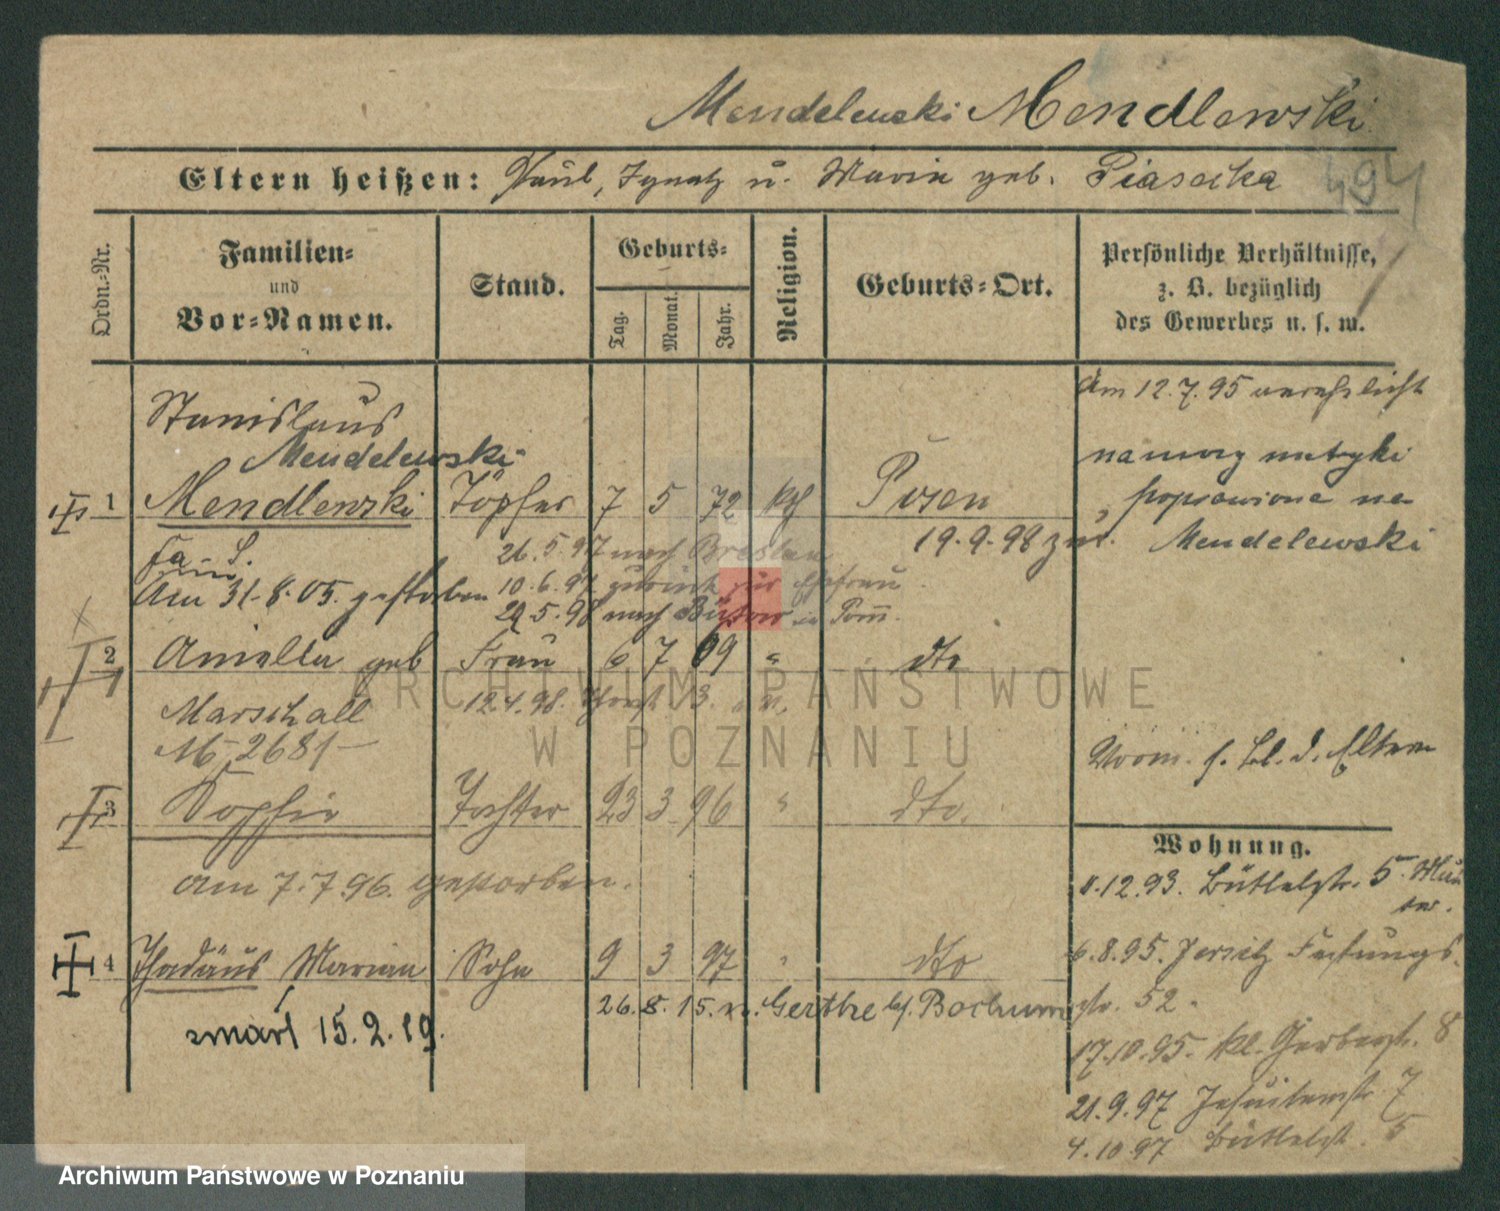 Mendelewski Mendlewski
Eltern heißen: Paul, Ignatz u. Maria geb. Piasecka
Ordn.-Nr.
Familien- und Vor-Namen.
Stand.
Geburts-
Tag. Monat. Jahr.
Religion.
Geburts-Ort.
Persönliche Verhältnisse,
z. B. bezüglich
des Gewerbes u. s. w.
am 12.7.95 verehelicht
Stanislaus
Mendelewski
1 Mendlewski Töpfer 7 5 72 kth Posen
na mocy metryki
poprawiono na
Mendelewski
26.5.97 nach Breslau 19.9.98 zur.
10.6.97 zurück zur Ehefrau
29.5.98 nach Bütow in Pom.
Am 31.8.05. gestorben
2 Aniella geb Frau 6 7 69 " dto
Marschall
12.4.98.
M 2681
Vorm. s. Bl. d. Eltern
3 Sophie Tochter 23 3 96 " dto.
am 7.7.96. gestorben.
Wohnung.
12.93. Büttelstr. 5.
4 Thadäus Marian Sohn 9 3 97 " dto
6.8.95. Jersitz Festungs-
str. 52.
26.8.15. n. Gerthe b/. Bochum
zmarł 15.2.19.
17.10.95. kl. Gerberstr. 8
21.9.97 Jesuitenstr. 7
4.10.97 Büttelst. 5
ARCHIWUM PAŃSTWOWE
W POZNANIU
Archiwum Państwowe w Poznaniu